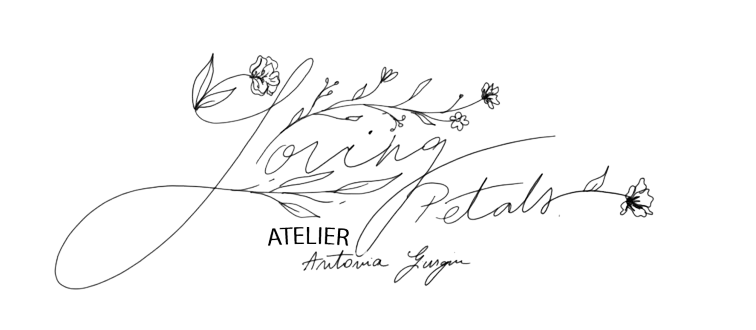 Loving
Petals
ATELIER
Antonia